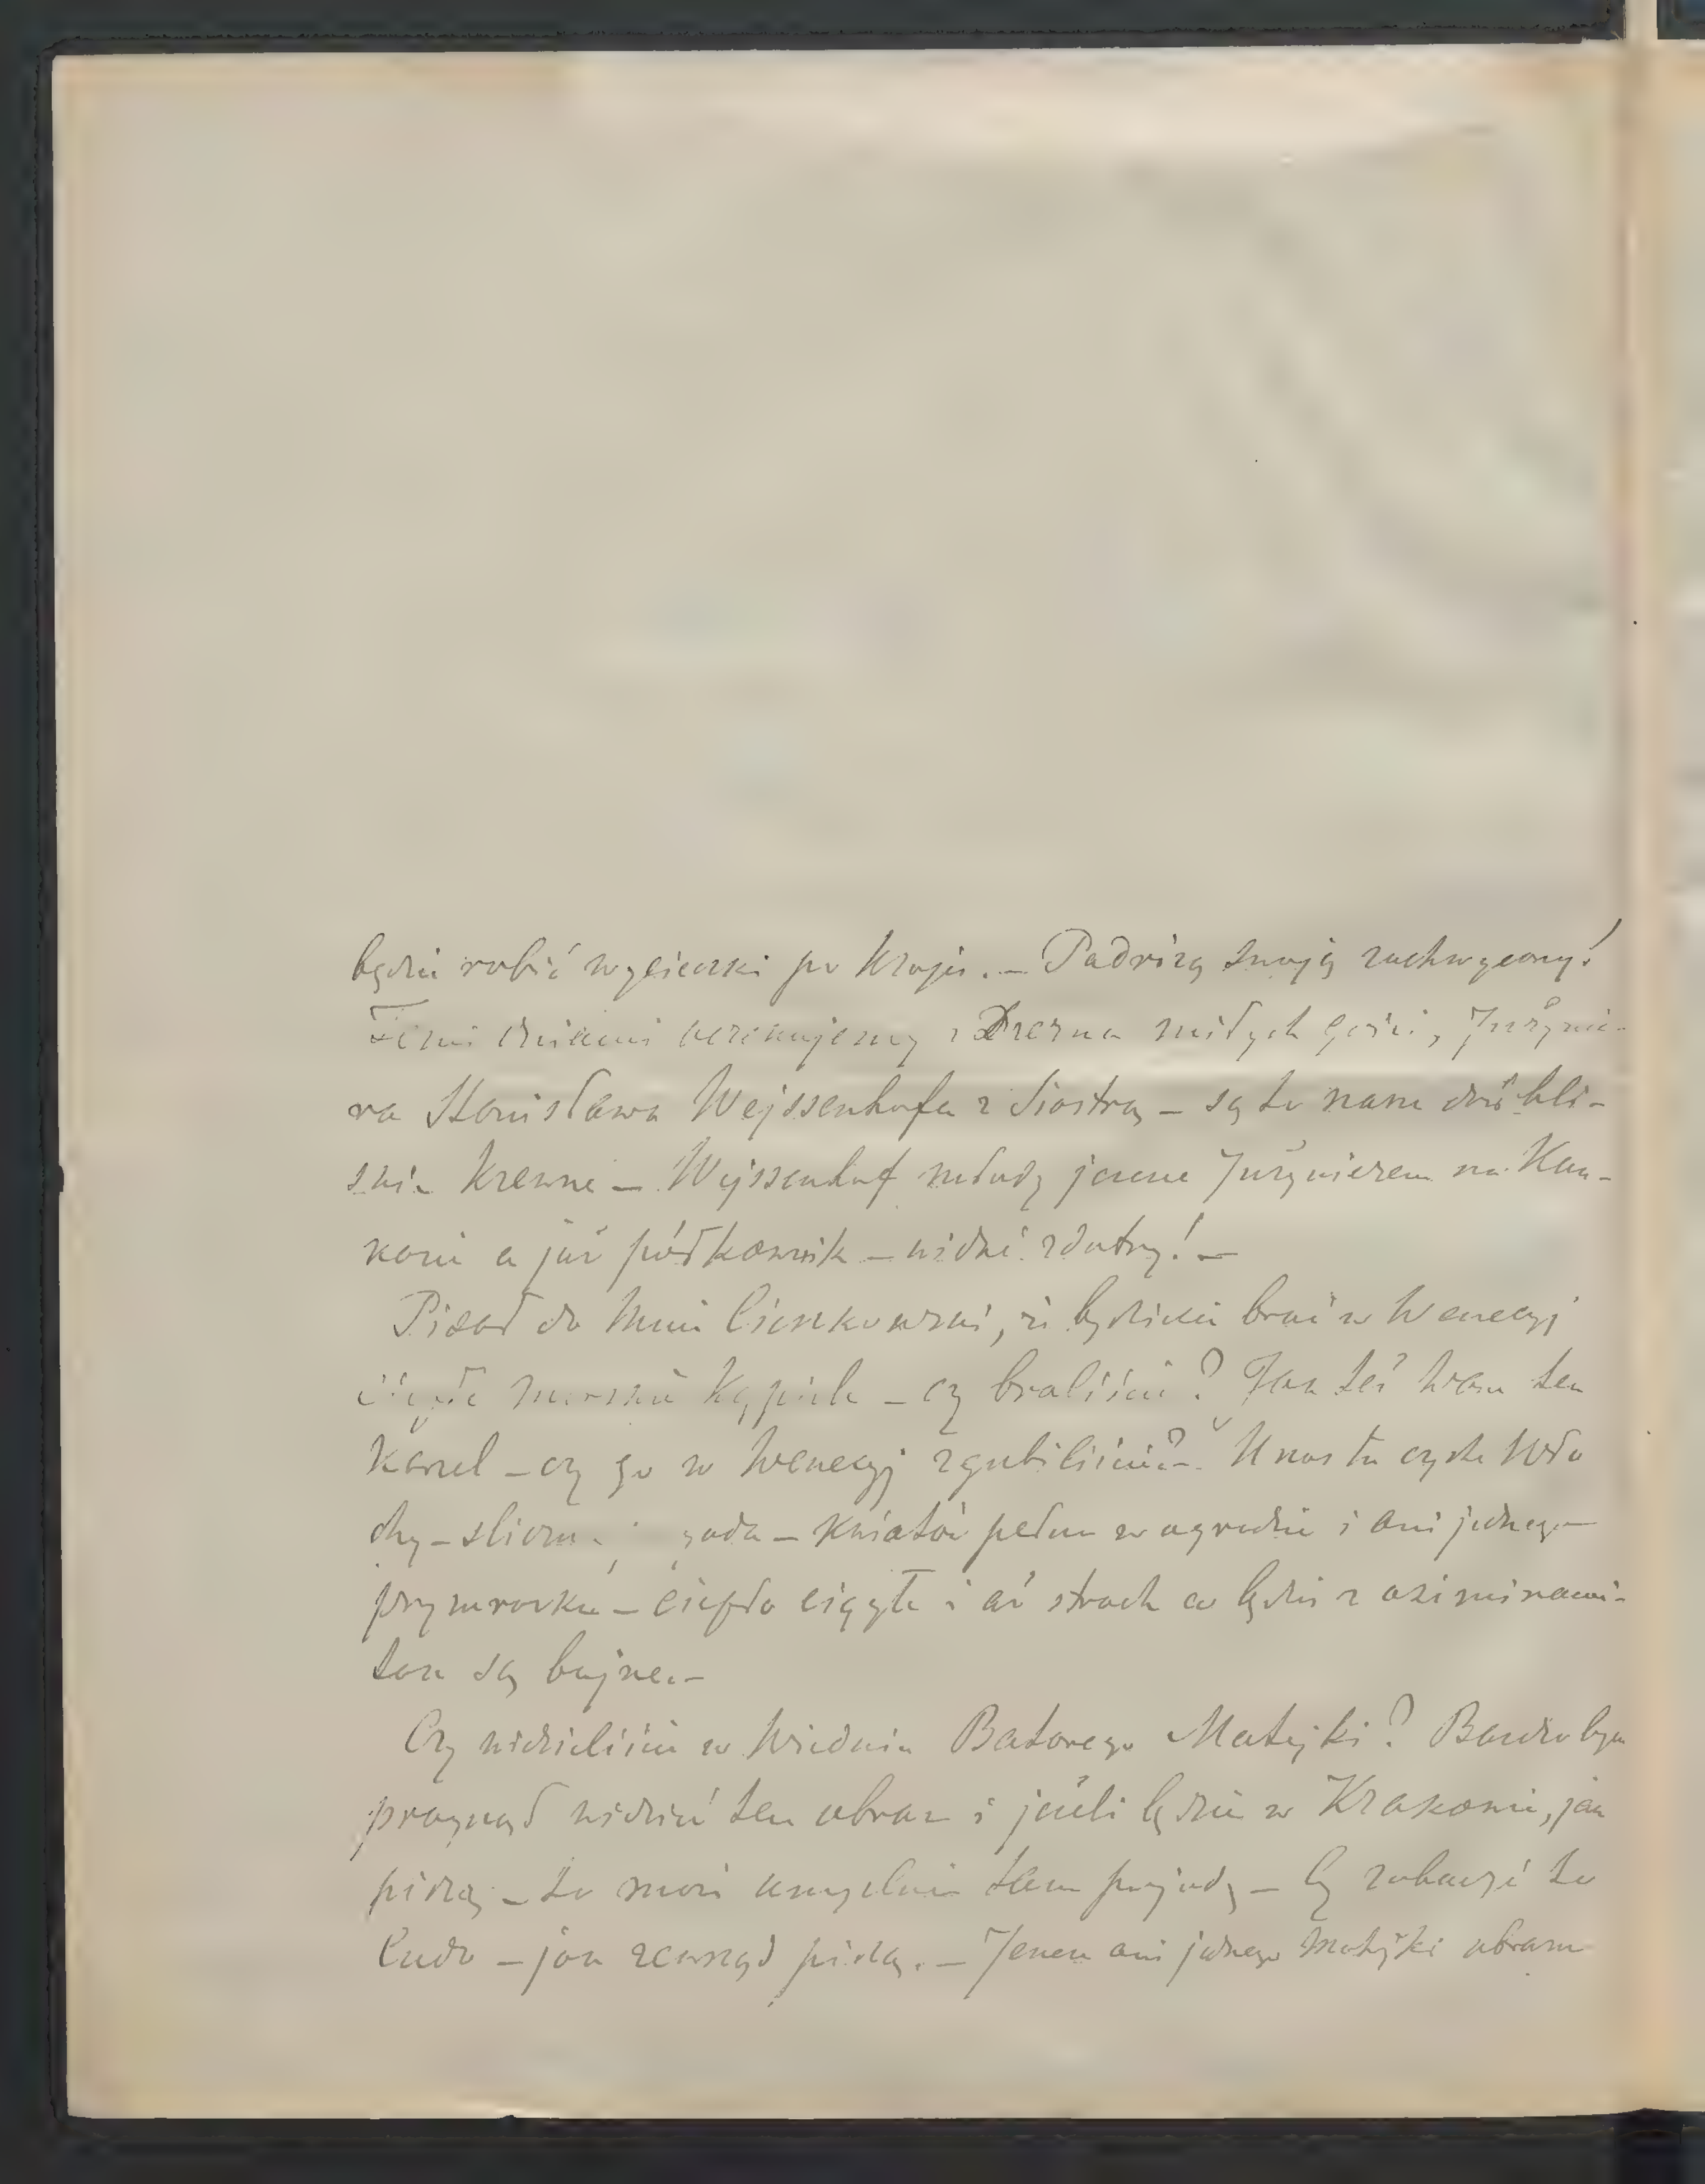 będzie robić wycieczki po Kraju. – Podróżą swoją zachwycony!
Temi dniami oczekujemy z Drezna miłych gości, Inżynie-
ra Stanisława Wejssenhofa z Siostrą – są to nam dość bli-
scy Krewni – Wejssenhof młody jeszcze Inżynierem na Kau-
kazie a już półkownik – widać zdatny! –
Pisał do mnie Cieszkowski, że będziecie brać w Wenecyj
morskie Kąpiele – czy braliście? Jak też Wam ten
Karzel – czy go w Wenecyj zgubiliście? – U nas tu czyste Wło
chy – śliczna – kwiatów pełno w ogrodzie i ani jednego
przymrozku – ciepło ciągłe i aż strach co będzie z oziminami –
tak są bujne. –
Czy widzieliście w Wiedniu Batorego Matejki? Bardzo bym
pragnął widzieć ten obraz i jeżeli będzie w Krakowie, jak
piszą – to może umyślnie tam pojadę – by zobaczyć to
Cudo – jak zewsząd piszą. – Jeszcze ani jednego Matejki obrazu